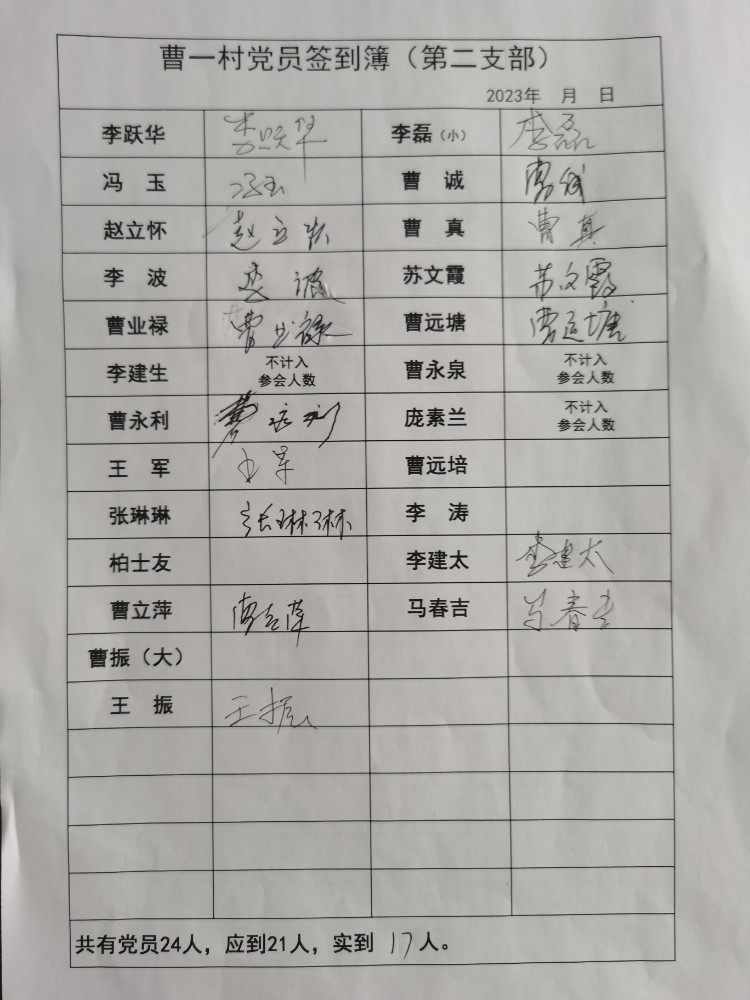 曹一村党员签到簿（第二支部）
2023年 月 日
李跃华 李跃华 李磊（小） 李磊
冯 玉 冯玉 曹 诚 曹诚
赵立怀 赵立怀 曹 真 曹真
李 波 李波 苏文霞 苏文霞
曹业禄 曹业禄 曹远塘 曹远塘
李建生 不计入 曹永泉 不计入
参会人数 参会人数
曹永利 曹永利 庞素兰 不计入
参会人数
王 军 王军 曹远培
张琳琳 张琳琳 李 涛
柏士友 李建太 李建太
曹立萍 曹立萍 马春吉 马春吉
曹振（大）
王 振 王振
共有党员24人，应到21人，实到 17 人。